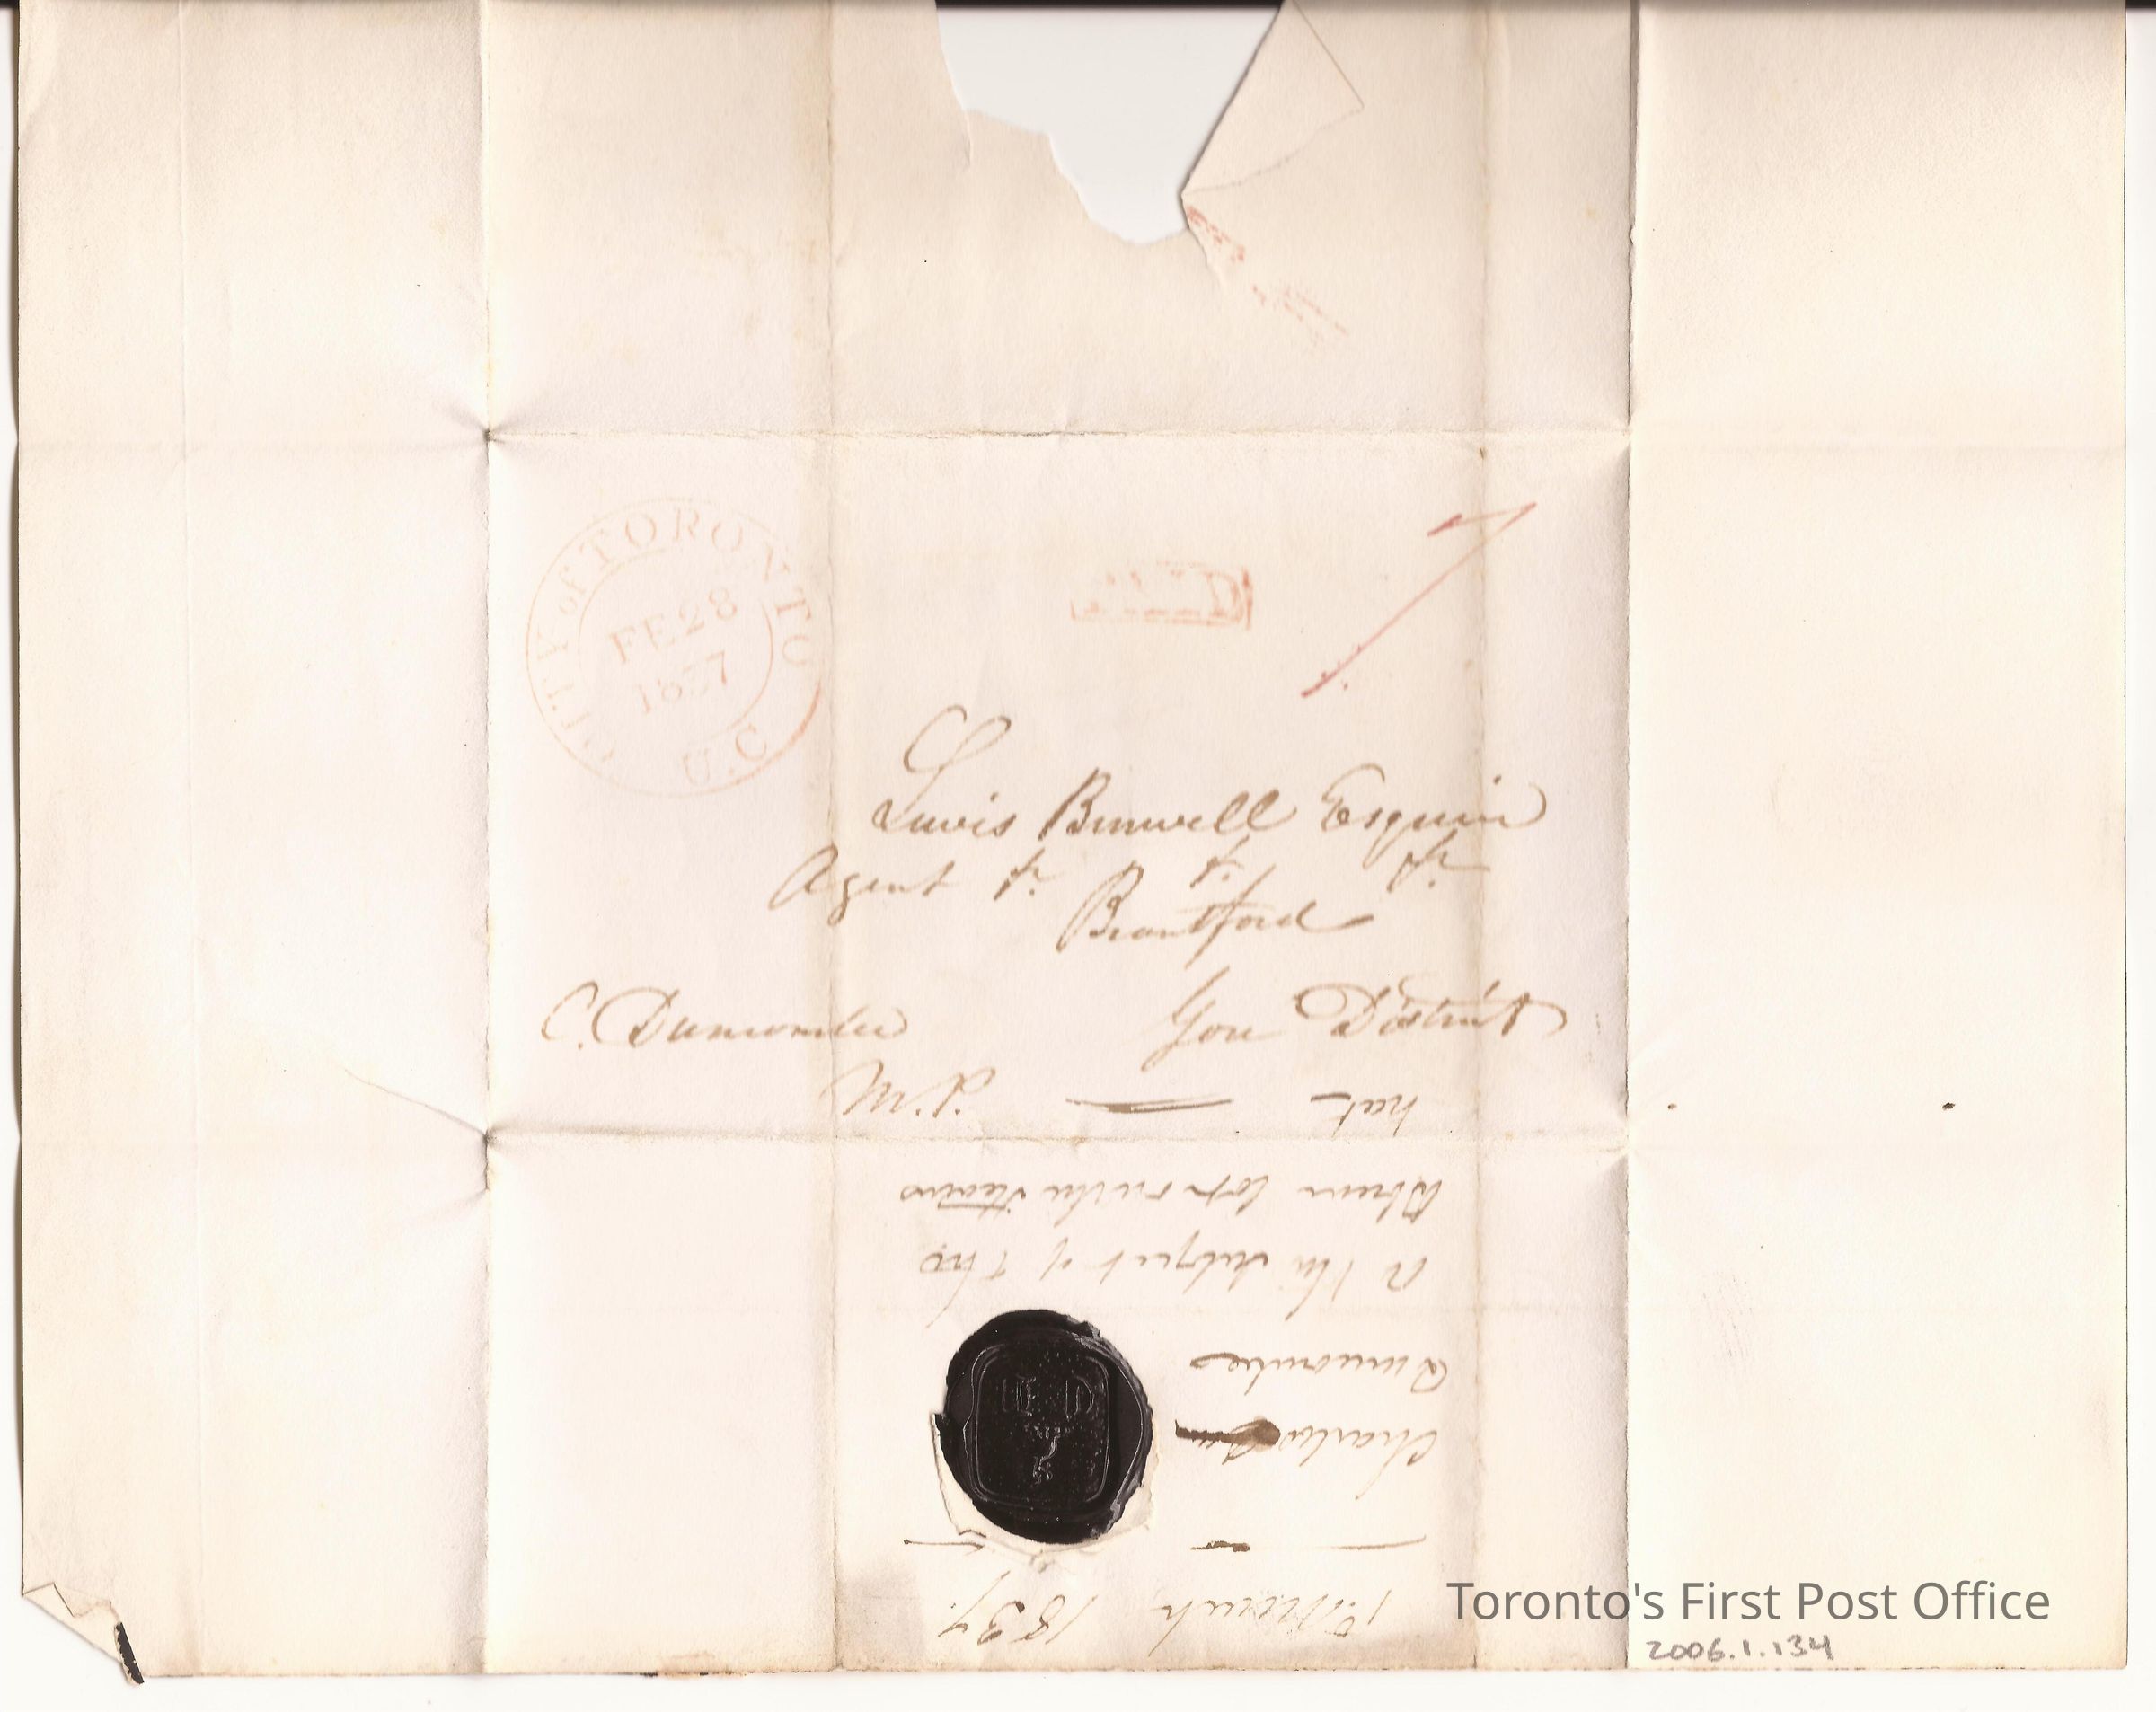 CITY of TORONTO
FE 28
1837
U.C
PAID
7
Lewis Burwell Esquire
Agent &c. &c. &c.
Brantford
Gore District
C. Duncombe
M.P.
1 March 1837.
Charles
Duncombe
the subject of the
Toronto's First Post Office
2006.1.134